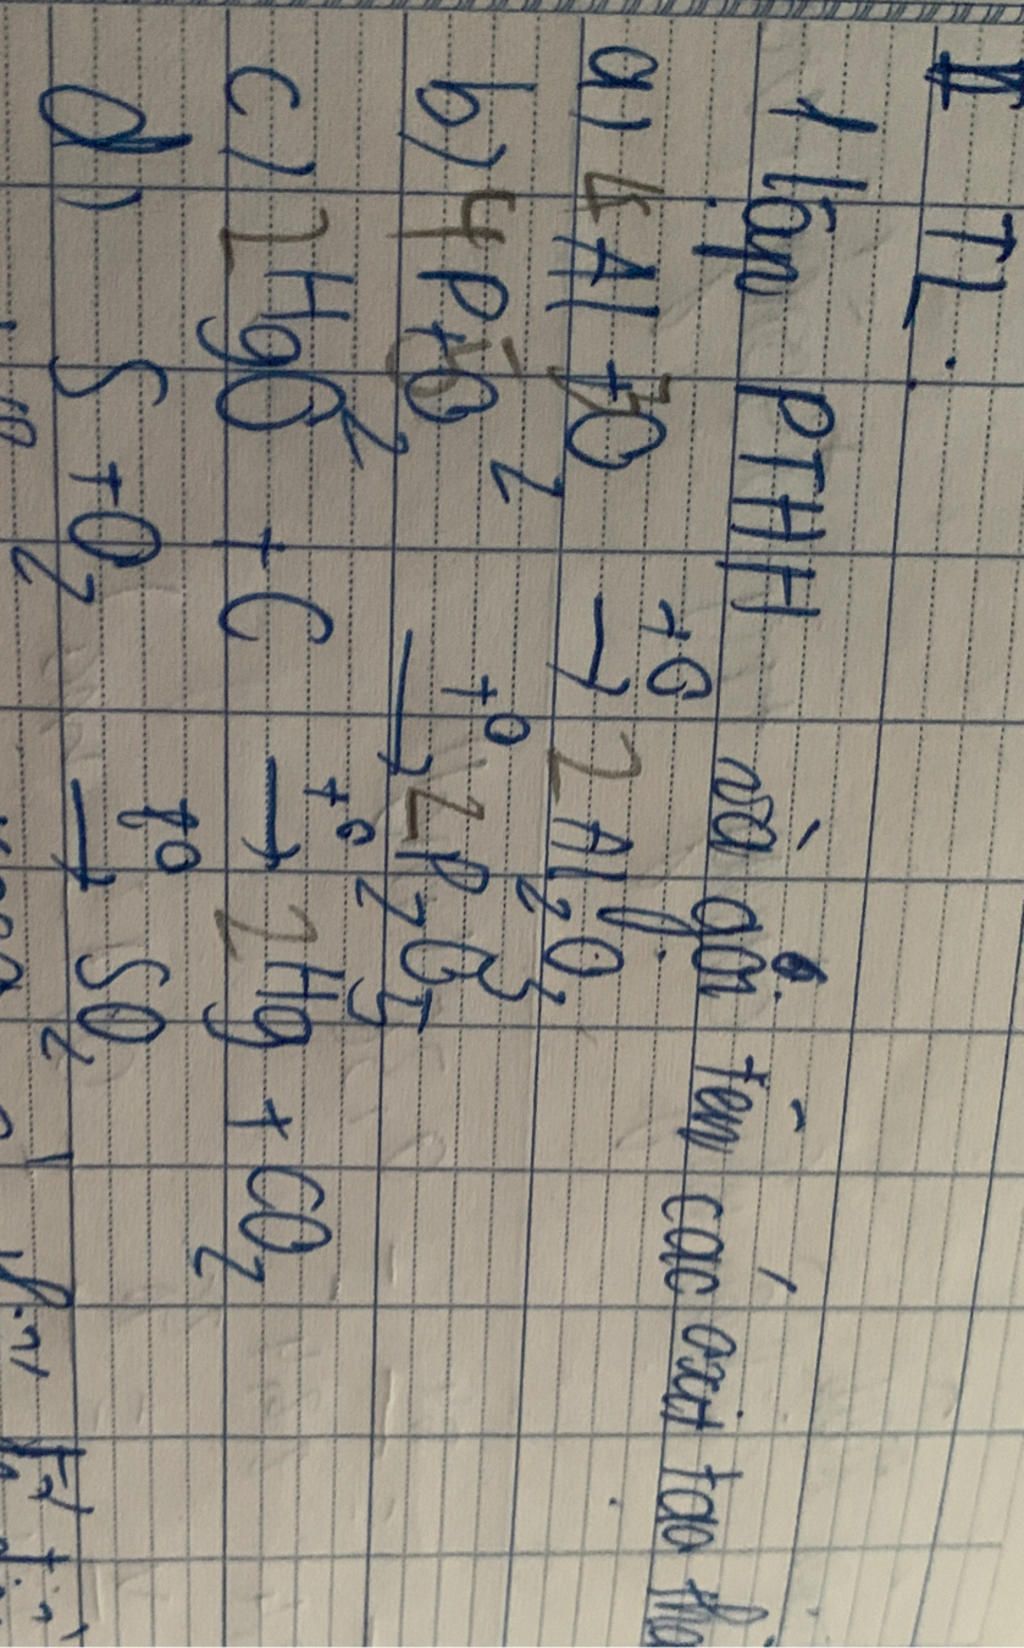 II TL.
1 lập PTHH và gọi tên các oxit tạo thà
a) 4Al + 3O2 t0→ 2Al2O3
b) 4P + 5O2 t0→ 2P2O5
c) 2HgO + C t0→ 2Hg + CO2
d) S + O2 t0→ SO2